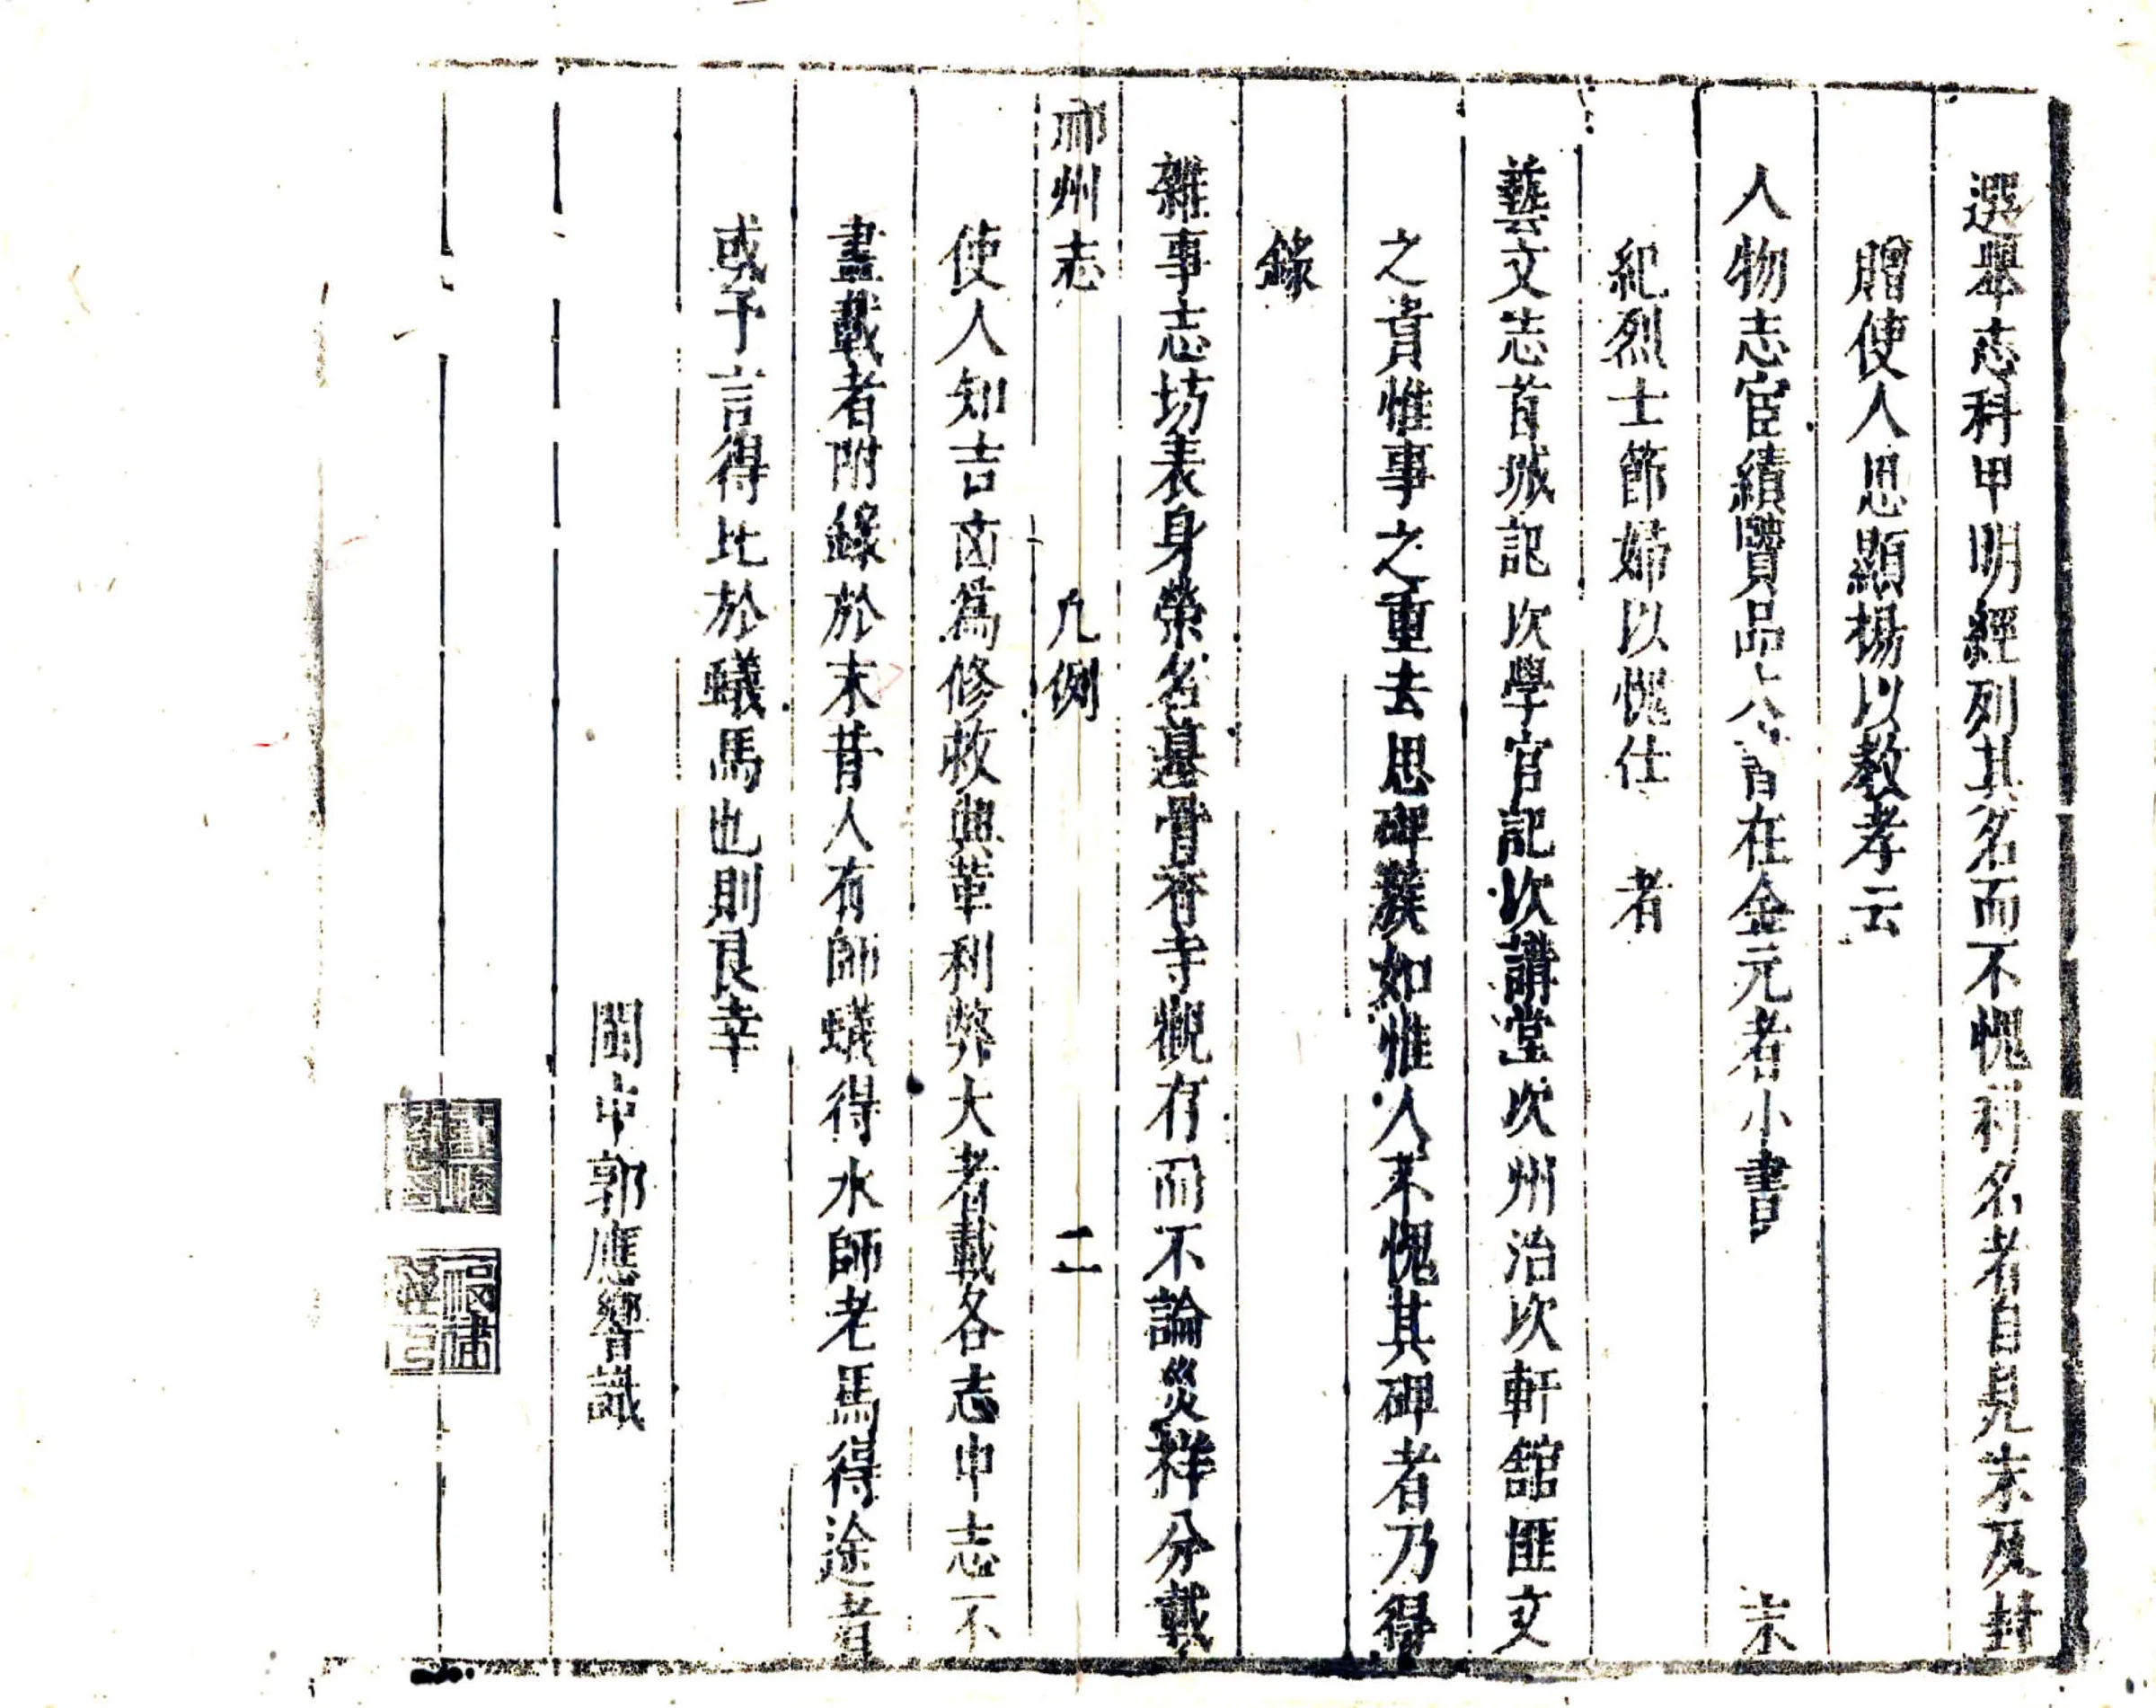 選舉志科甲明經列其名而不愧科名者自見末及封
贈使人思顯揚以教孝云
人物志宦績贋品大 自在金元者小書 末
紀烈士節婦以愧仕 者
藝文志首城記次學官記次講堂次州治次軒舘匪文
之貴惟事之重去思碑蔟如惟人不愧其碑者乃得
錄
雜事志坊表身榮名墓骨香寺觀存而不論災祥分載
祁州志 凡例 二
使人知吉㐫爲修救興革利弊大者載各志中志不
盡載者附錄於末昔人有師蟻得水師老馬得途者
或予言得比於蟻馬也則良幸
閩中郭應響識